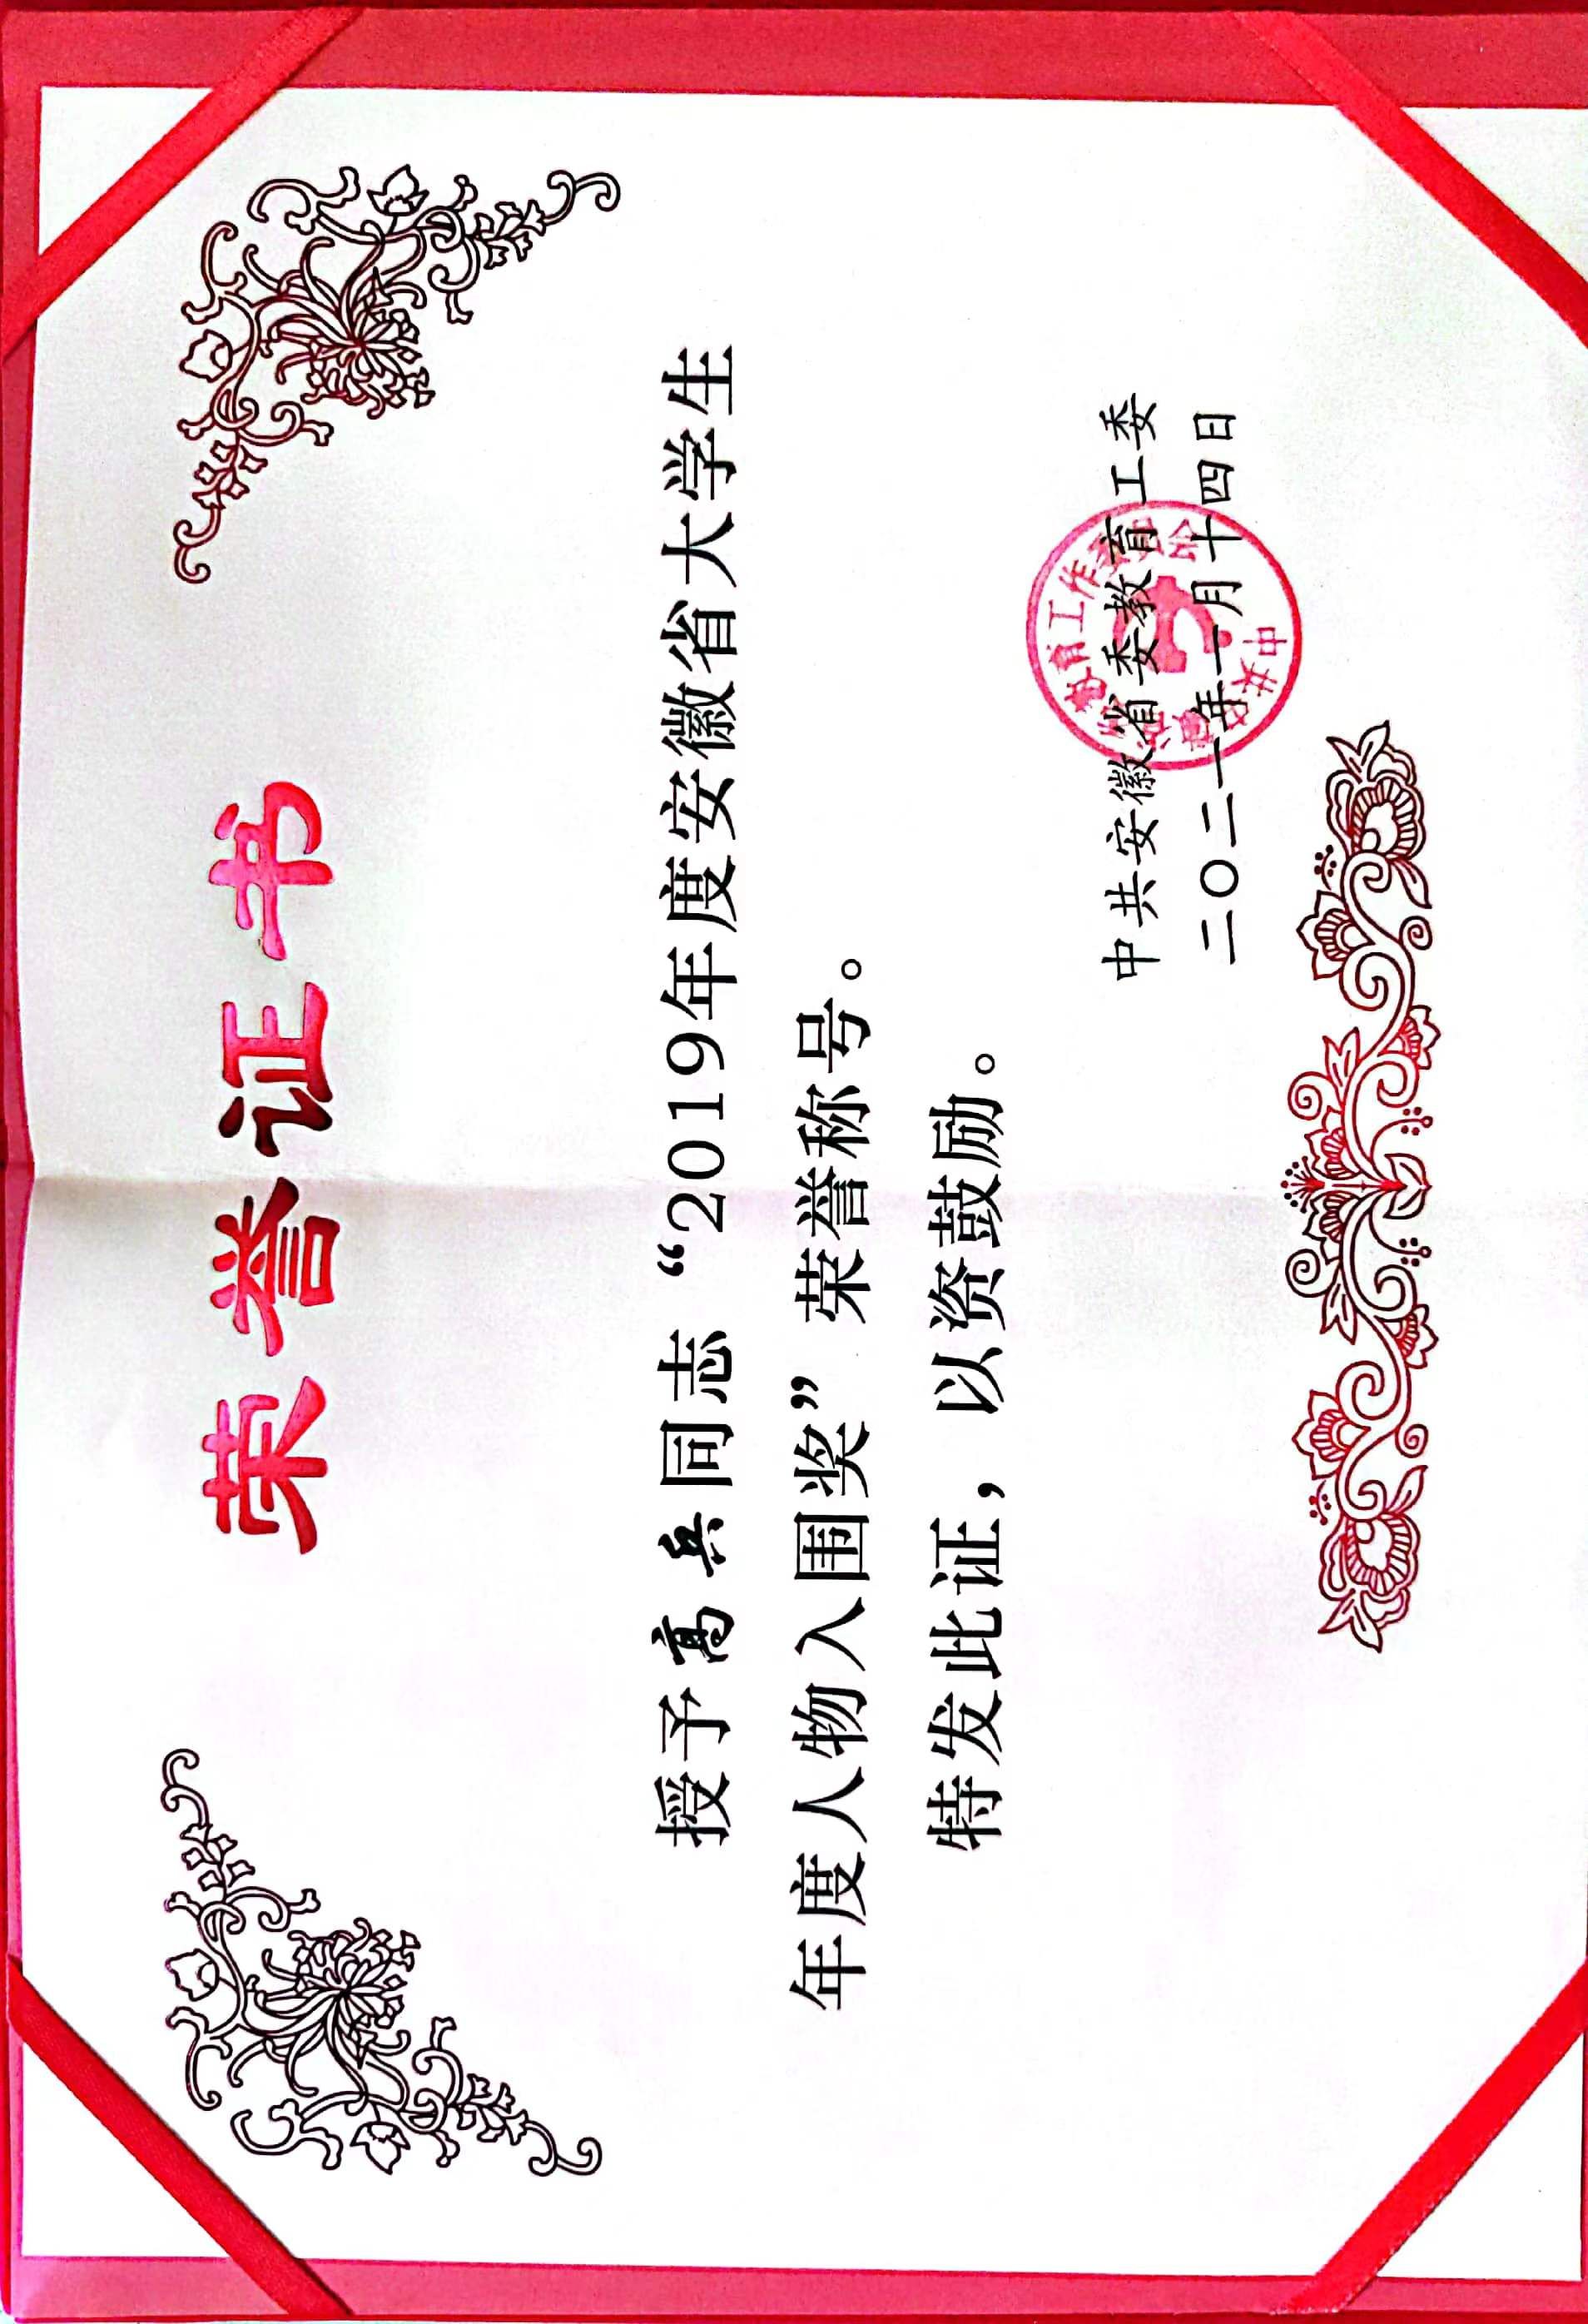 荣誉证书
授予高兵同志“2019年度安徽省大学生
年度人物入围奖”荣誉称号。
特发此证，以资鼓励。
中共安徽省委教育工委
二〇二一年一月十四日